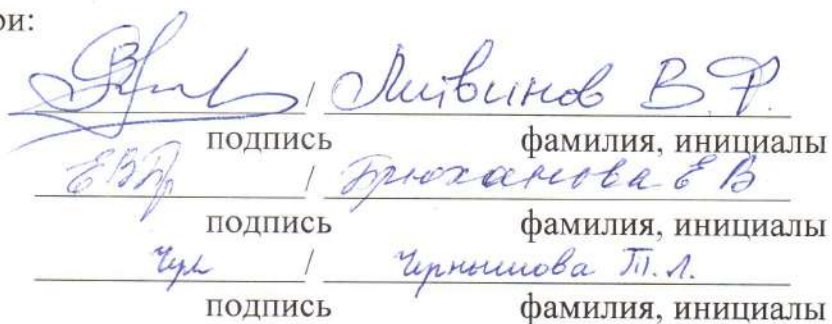 ри:
/ Литвинов В.Р.
подпись фамилия, инициалы
ЕВБр / Брюханова Е В
подпись фамилия, инициалы
Чер / Чернышова Т.Л.
подпись фамилия, инициалы